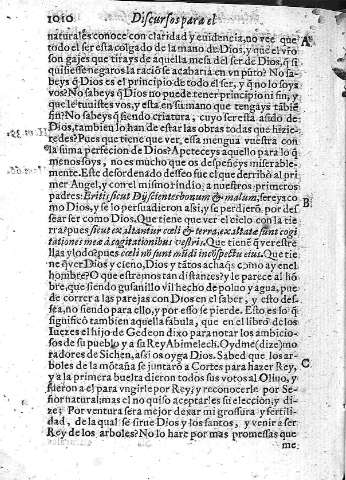 1010 Discursos para el
naturales conoce con claridad y euidencia, no vee que
todo el ser està colgado de la mano de Dios, y que el viuo
son gajes que tirays de aquella mesa del ser de Dios, q̃ si
quisiesse negaros la raciõ se acabaria en vn pũto? No sa-
beys q̃ Dios es el principio de todo el ser, y q̃ no lo soys
vos? No sabeys q̃ Dios no puede tener principio ni fin, y
que le tuuistes vos, y esta en su mano que tengays tãbiẽ
fin? No sabeys q̃ siendo criatura, cuyo ser està asido de
Dios, tambien lo han de estar las obras todas que hizie-
redes? Pues que tiene que ver, essa mengua vuestra con
la suma perfecion de Dios? Apeteceys aquello para lo q̃
menos soys, no es mucho que os despeñeys miserable-
mente. Este desordenado desseo fue el que derribò al pri
mer Angel, y con el mismo rindio, a nuestros primeros
padres: Eritis sicut Dij scientes bonum & malum, sereys co
mo Dios, y se lo persuadieron assi, y se perdierõ, por des
sear ser como Dios. Que tiene que ver el cielo con la tie
rra? pues sicut exaltantur cœli à terra, exaltatæ sunt cogi
tationes meæ à cogitationibus vestris. Que tiene q̃ ver estre
llas y lodo? pues cœli nõ sunt mũdi in cõspectu eius. Que tie
ne q̃ ver Dios y cieno, Dios y tãtos achaq̃s como ay en el
hombre? O que estremos tan distantes? y le parece al hõ
bre, que siendo gusanillo vil hecho de poluo y agua, pue
de correr a las parejas con Dios en el saber, y esto des-
sea, no siendo para ello, y por esso se pierde. Esto es lo q̃
significò tambien aquella fabula, que en el libro de los
Iuezes el hijo de Gedeon dixo para notar los ambicio-
sos de su pueblo y a su Rey Abimelech. Oydme (dize) mo
radores de Sichen, assi os oyga Dios. Sabed que los ar-
boles de la mõtaña se juntarõ a Cortes para hazer Rey,
y a la primera buelta dieron todos sus votos al Oliuo, y
fueron a el para vngirle por Rey, y reconocerle por Se-
ñor natural; mas el no quiso aceptarles su eleccion, y di
ze: Por ventura serà mejor dexar mi grossura y fertili-
dad, de la qual se sirue Dios y los santos, y venir a ser
Rey de los arboles? No lo harè por mas promessas que
me
A
B
C